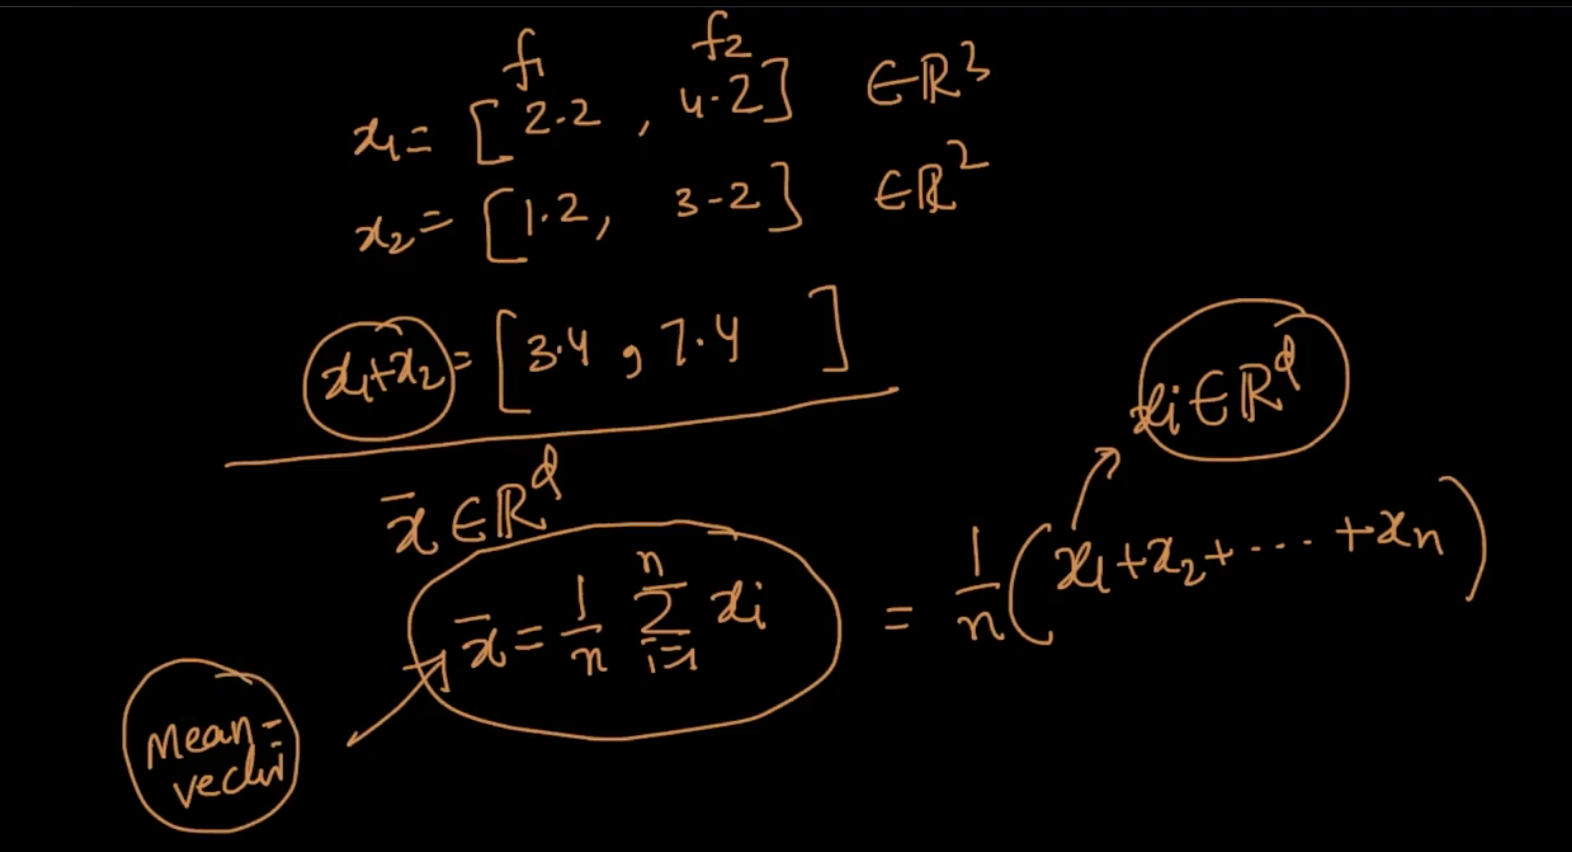 f₁ f₂
x₁ = [2.2, 4.2] ∈ ℝ³
x₂ = [1.2, 3.2] ∈ ℝ²
x₁+x₂ = [3.4, 7.4 ]
xᵢ ∈ ℝᵈ
x̄ ∈ ℝᵈ
x̄ = 1/n ∑ᵢ₌₁ⁿ xᵢ = 1/n (x₁+x₂+ .... +xₙ)
Mean-
vector